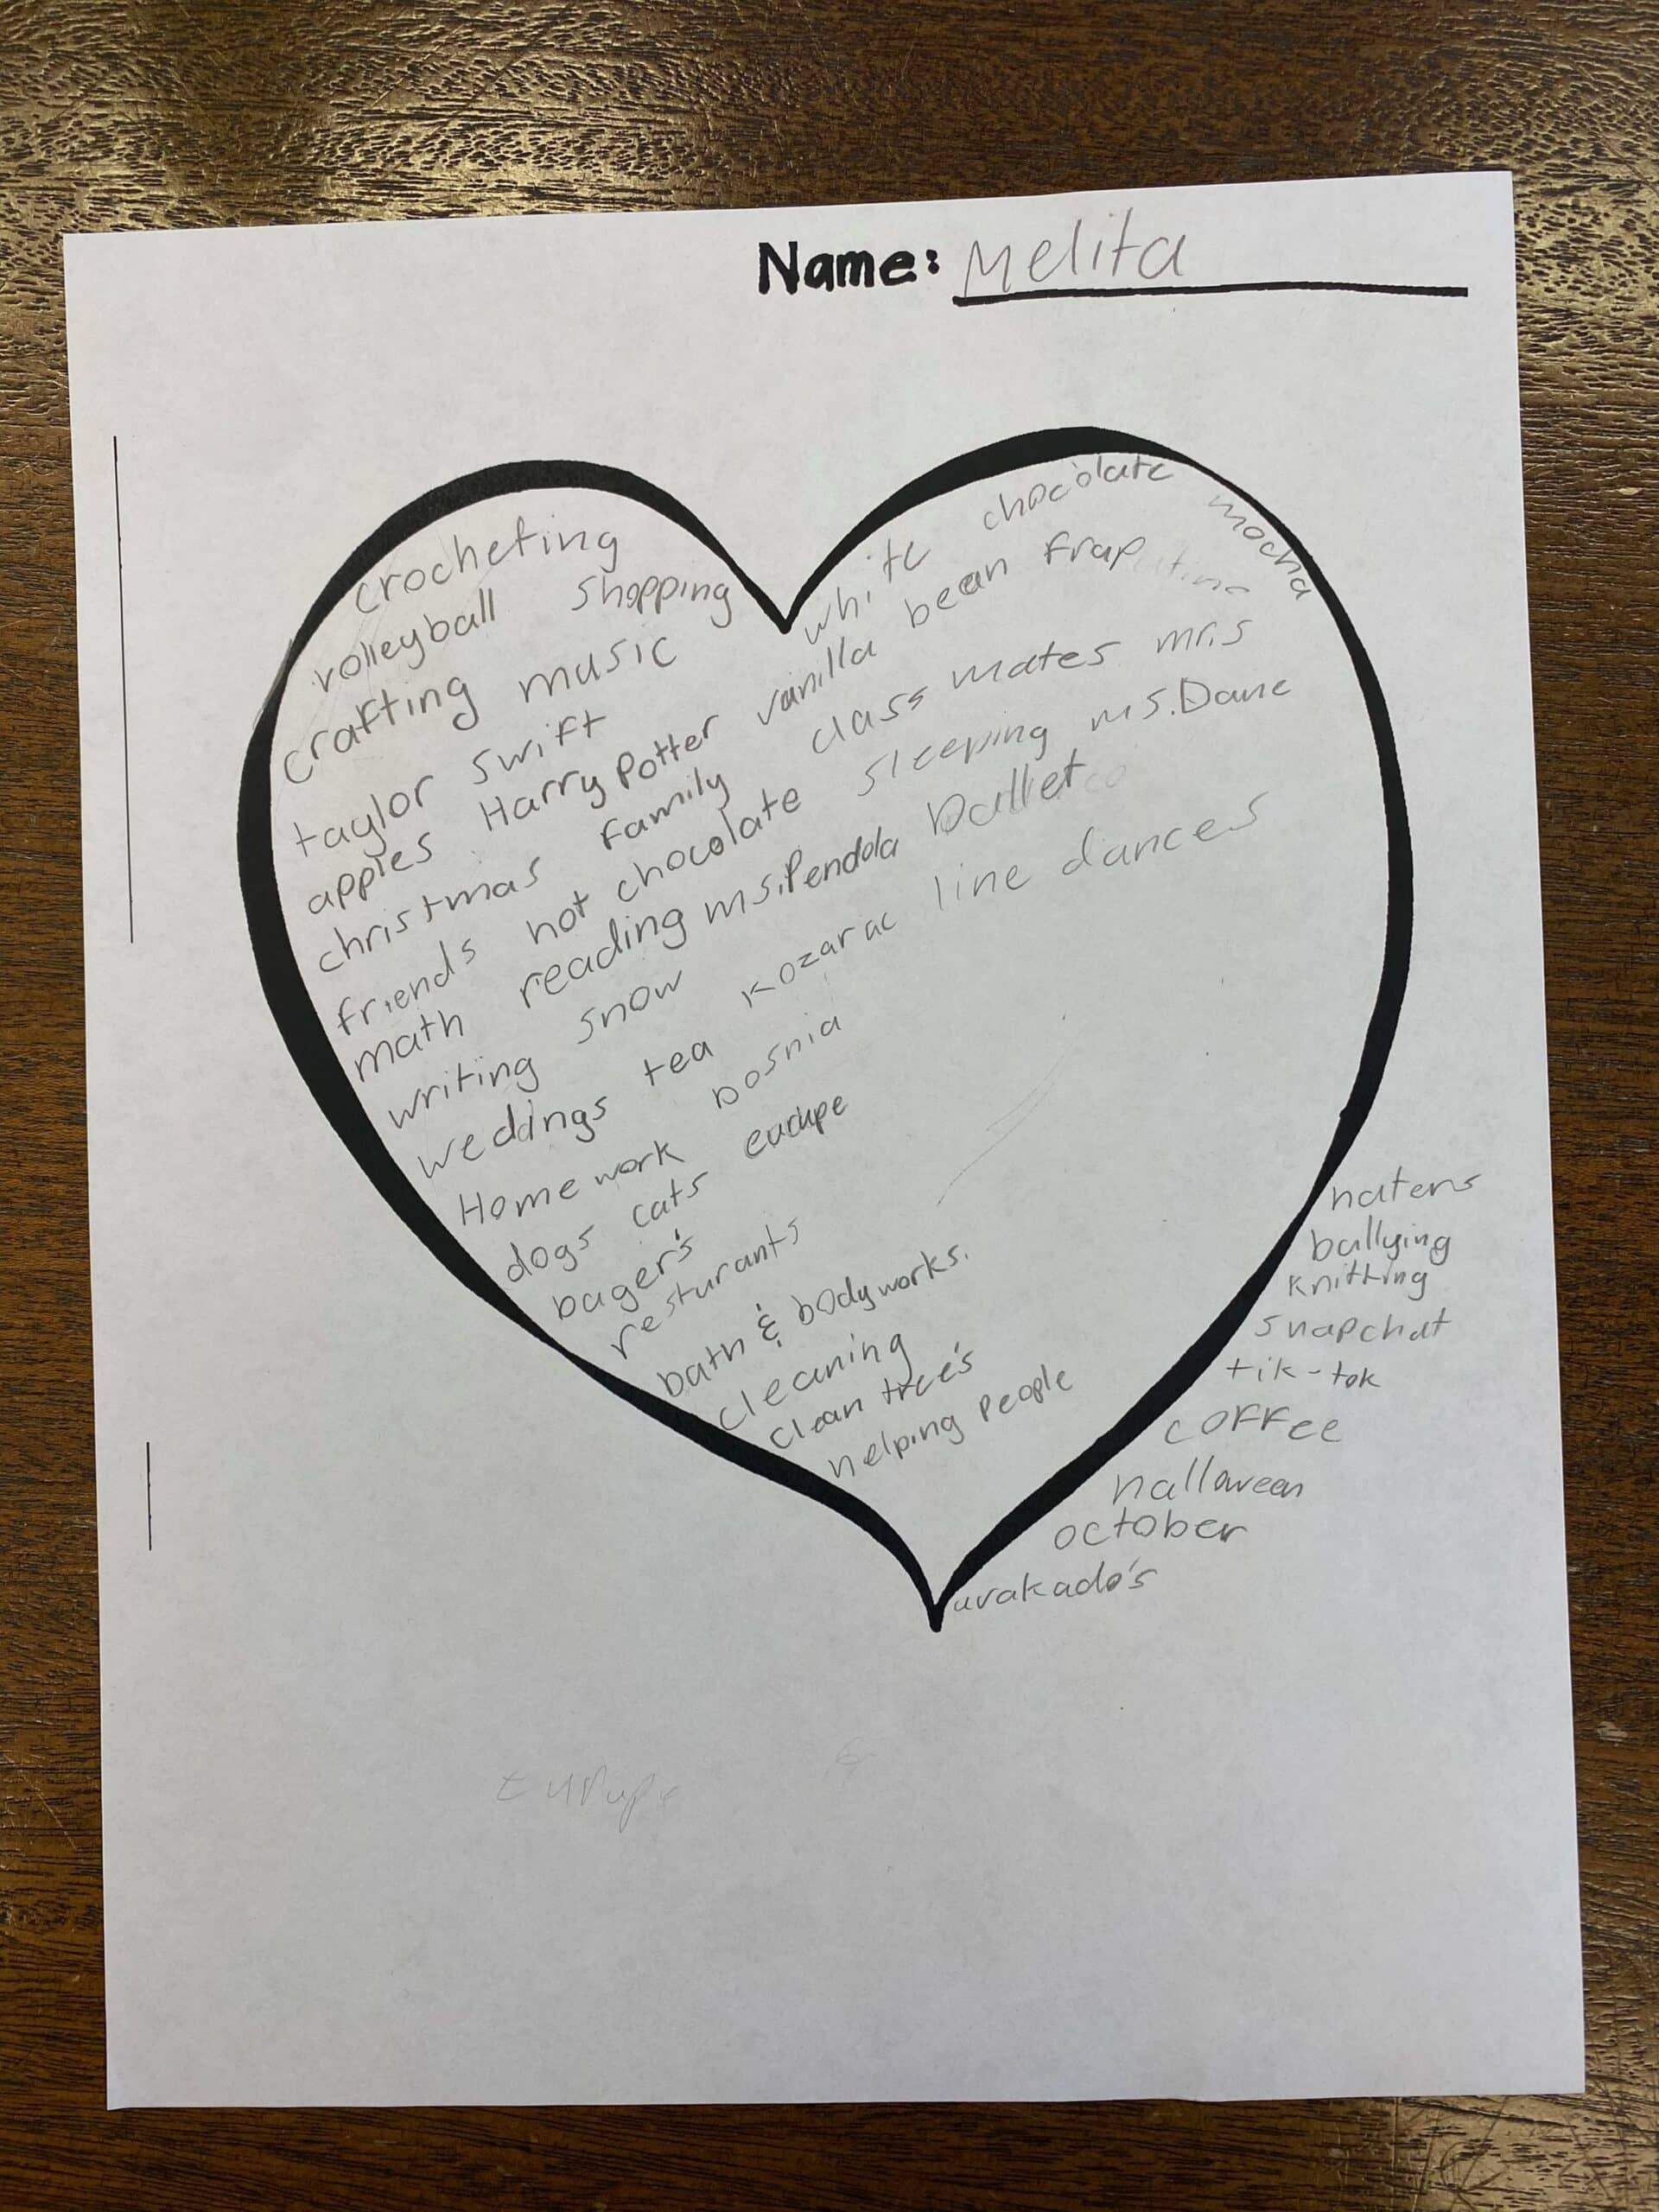 Name: Melita
crocheting
volleyball shopping
crafting music
taylor swift
apples Harry Potter vanilla bean frap
white chocolate mocha
christmas family class mates mr.s
friends hot chocolate sleeping ms.Dane
math reading ms.Pendola ballet
writing snow
weddings tea kozarac line dances
Home work bosnia
dogs cats europe
buger's
resturants
bath & bodyworks.
cleaning
clean tree's
helping people
haters
bullying
knitting
snapchat
tik-tok
coffee
halloween
october
avakado's